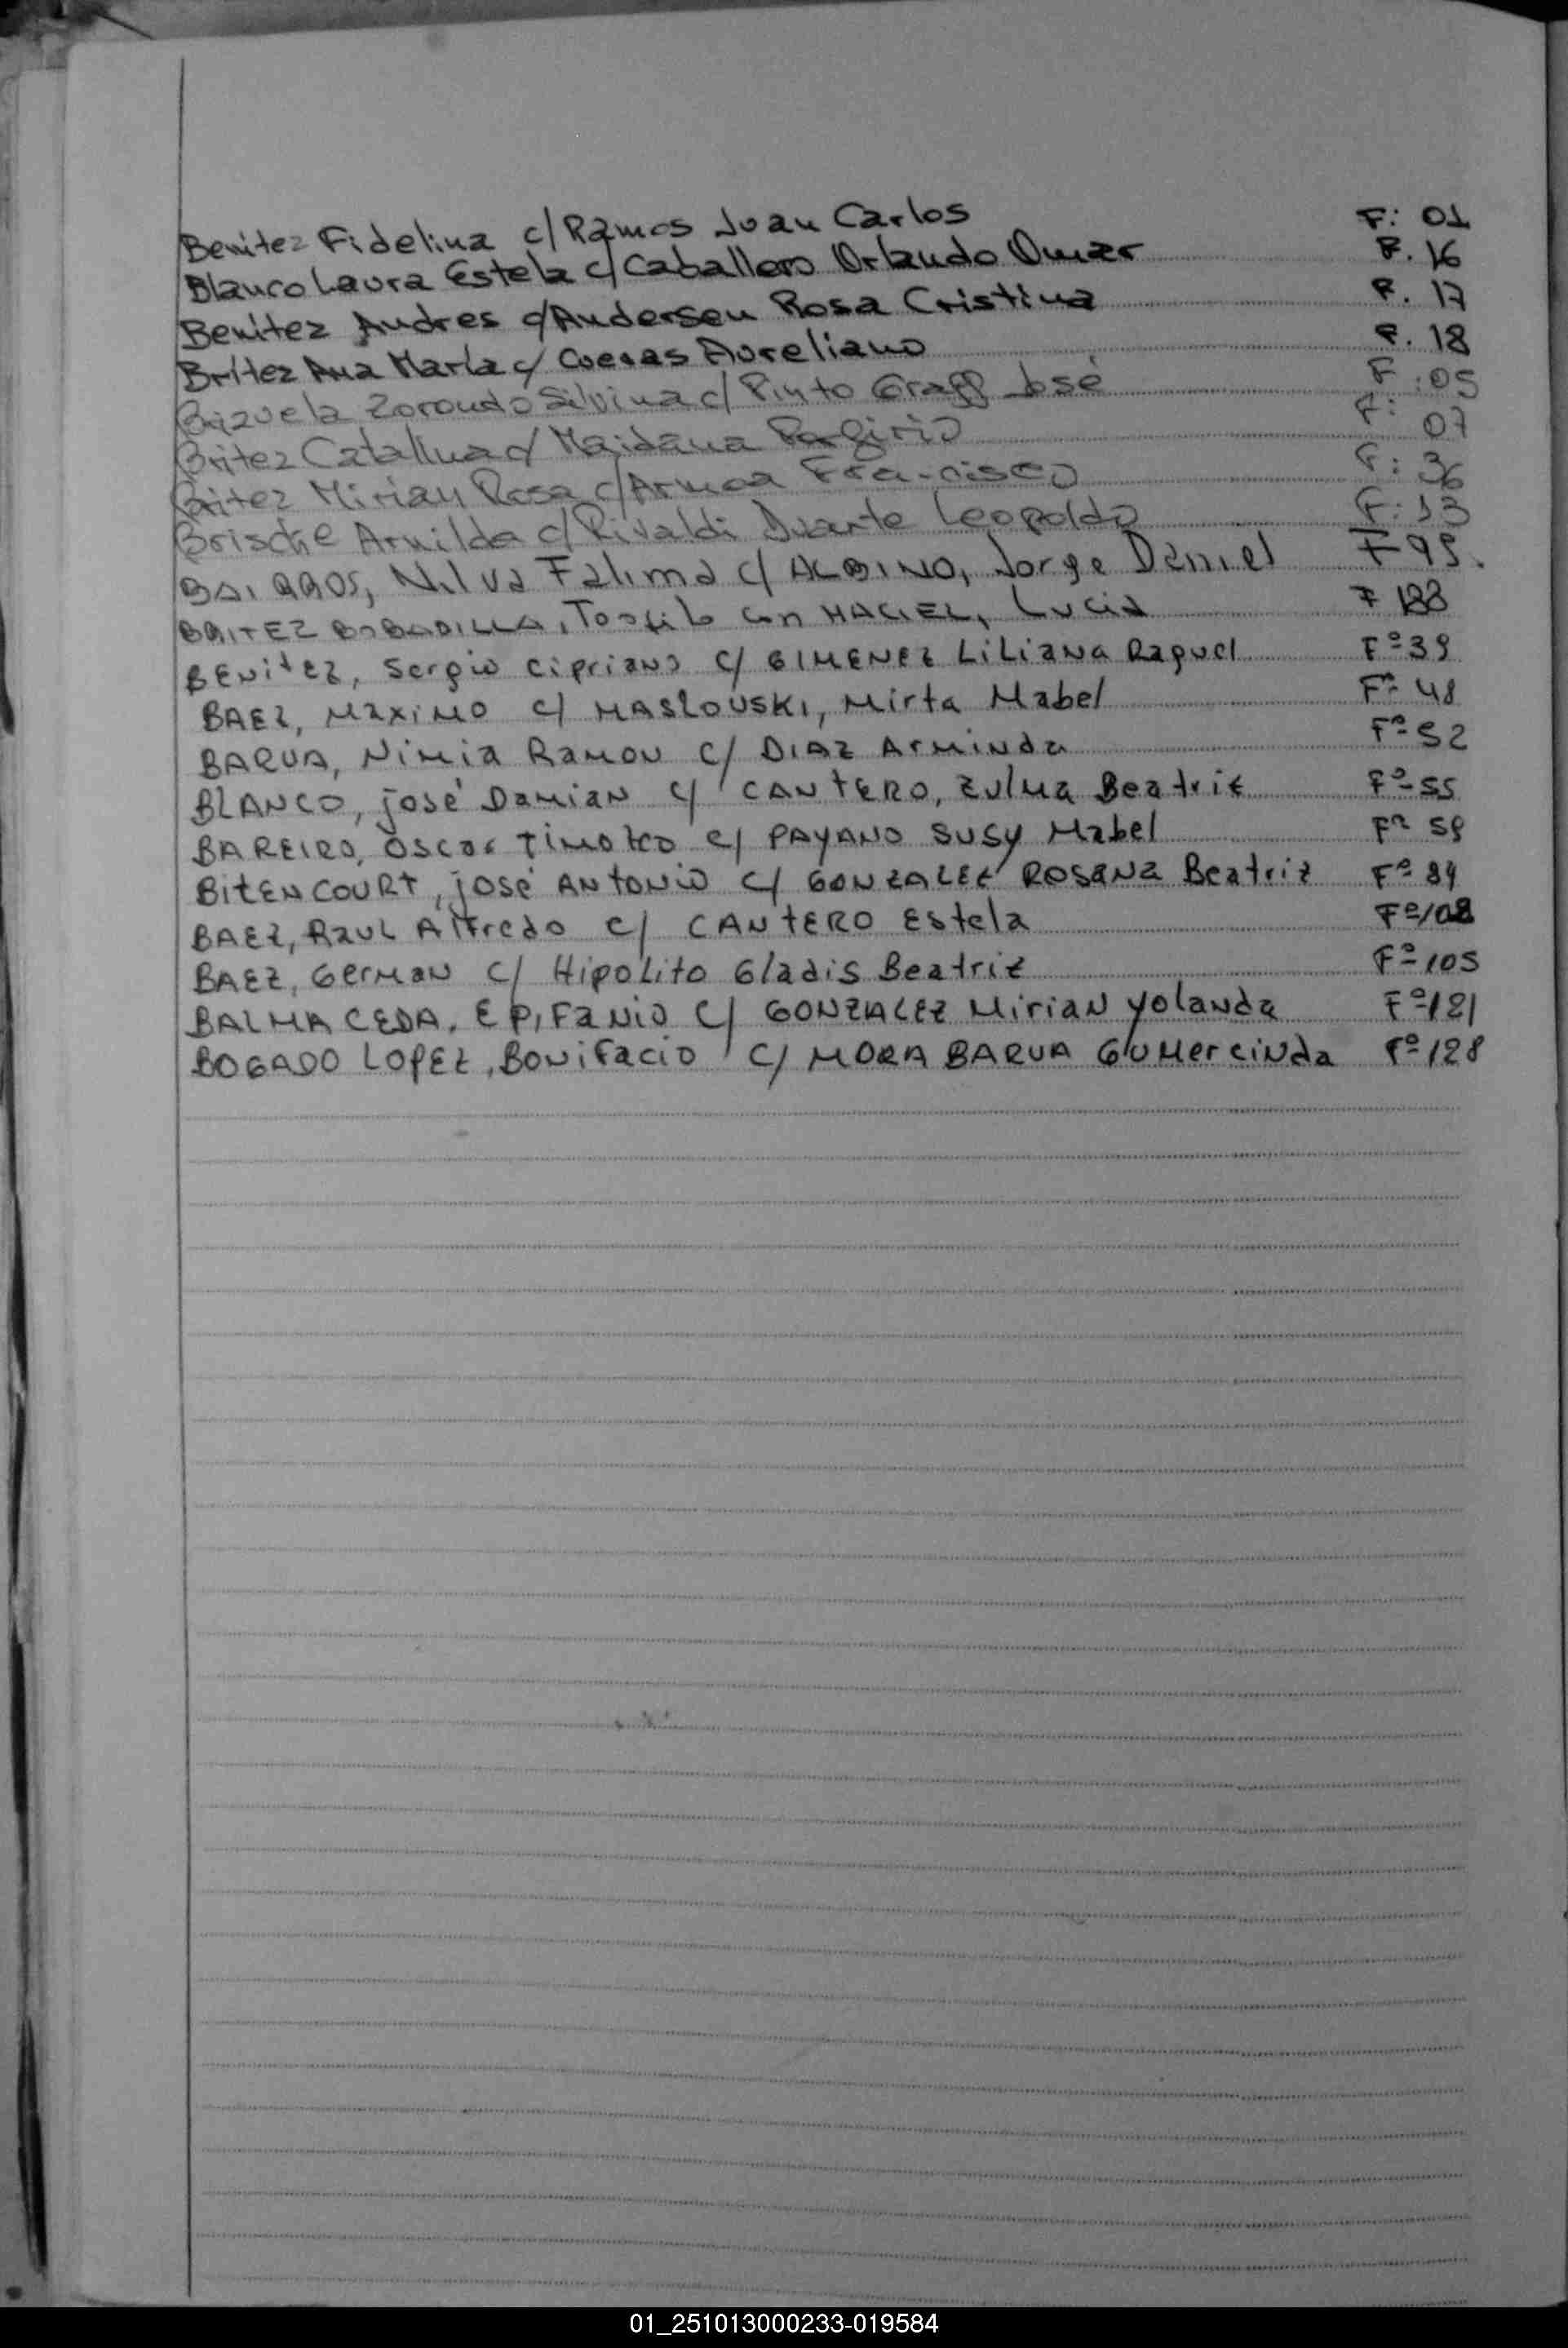 Benitez Fidelina c/ Ramos Juan Carlos F: 01
Blanco Laura Estela c/ Caballero Orlando Omar F. 16
Benitez Andres c/ Andersen Rosa Cristina F. 17
Britez Ana Maria c/ Cuevas Aureliano F. 18
Brizuela Zorondo Silvina c/ Pinto Graff José F :05
Britez Catalina c/ Maidana Porfirio F: 07
Britez Mirian Rosa c/ Armoa Francisco F: 36
Brische Arnilda c/ Rivaldi Duarte Leopoldo F: 13
BAIRROS, Nilva Fatima c/ ALBINO, Jorge Daniel F 95.
BRITEZ BOBADILLA, Teofilo con MACIEL, Lucia F 188
BENitEZ, Sergio Cipriano c/ GIMENEZ LiLiana Raquel Fº 39
BAEZ, Maximo c/ MASLOUSKI, Mirta Mabel Fº 48
BARUA, Nimia Ramon c/ DIAZ Arminda Fº 52
BLANCO, josé Damian c/ CANTERO, Zulma Beatriz Fº 55
BAREIRO, Oscar Timoteo c/ PAYANO SUSY Mabel Fº 59
BitENCOURT, josé ANtonio c/ GONZALEZ ROSANA Beatriz Fº 84
BAEZ, RAUL Alfredo c/ CANTERO Estela Fº 102
BAEZ, German c/ Hipolito Gladis Beatriz Fº 105
BALMACEDA, EPIFANIO c/ GONZALEZ Mirian Yolanda Fº 121
BOGADO LOPEZ, BONIFacio c/ MORA BARUA GUMercinda Fº 128
01_251013000233-019584